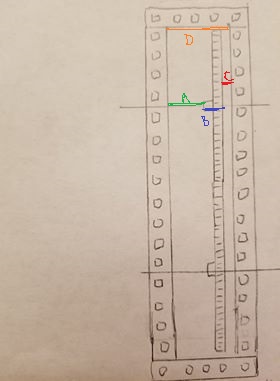 D
C
A
B